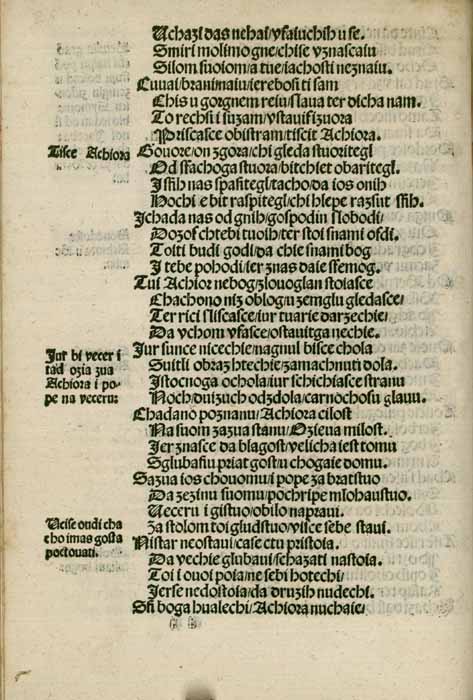 Uchazi das nehai/ ysaiuchih u se.
Smiri molimo gne/ chise uznascaiu
Silom suoiom/ a tue/ iachosti neznaiu.
Cuuai/ branimaiu/ ierebosi ti sam
Chis u gorgnem reiu/ slaua ter dicha nam.
To rechsi i suzam/ ustauisizuora
Priscasce obistram/ tiscit Achiora.
Tisce Achiora
Gouore/ on zgora/ chi gleda stuoritegl
Od sfachoga stuora/ bitchiet obaritegl.
Isfih nas spasitegl/ tacho/ da ios onih
Hochi e bit raspitegl/ chi hlepe razsut sfih.
Ichada nas od gnih/ gospodin slobodi/
Dozof chtebi tuoih/ ter stoi snami osdi.
Toiti budi godi/ da chie snami bog
I tebe pohodi/ ier znas daie sfemog.
Tui Achior nebog/ zlouoglan stoiasce
Chachono niz oblog/ u zemglu gledasce/
Ter rici sliscasce/ iur tuarie darzechie/
Da uchom ufasce/ ostauitga nechie.
Iur bi uecer i
tad ozia zua
Achiora i po-
pe na ueceru:
Iur sunce nicechie/ nagnul bisce chola
Suitli obraz htechie/ zamachnuti dola.
Istocnoga ochola/ iur schichiasce stranu
Noch/ duizuch odzdola/ carnochosu glauu.
Chadano poznanu/ Achiora cilost
Na suom zazua stanu/ Ozieua milost.
Ier znasce da blagost/ uelicha iest tomu
Sglubafiu priat gost/ u chogaie domu.
Sazua ios chouomu/ i pope za bratstuo
Da zezinu suomu/ pochripe mlohaustuo.
Ueceru i gistuo/ obilo napraui.
Ucise oudi cha
cho imas gosta
poctouati.
Za stolom toi gludstuo/ uisce sebe staui.
Nistar neostaui/ case ctu pristoia.
Da uechie glubaui/ schazati nastoia.
Toi i ouoi poia/ ne sebi hotechi/
Ierse nedostoia/ da druzih nudechi.
Sfi boga hualechi/ Achiora nuchaie/